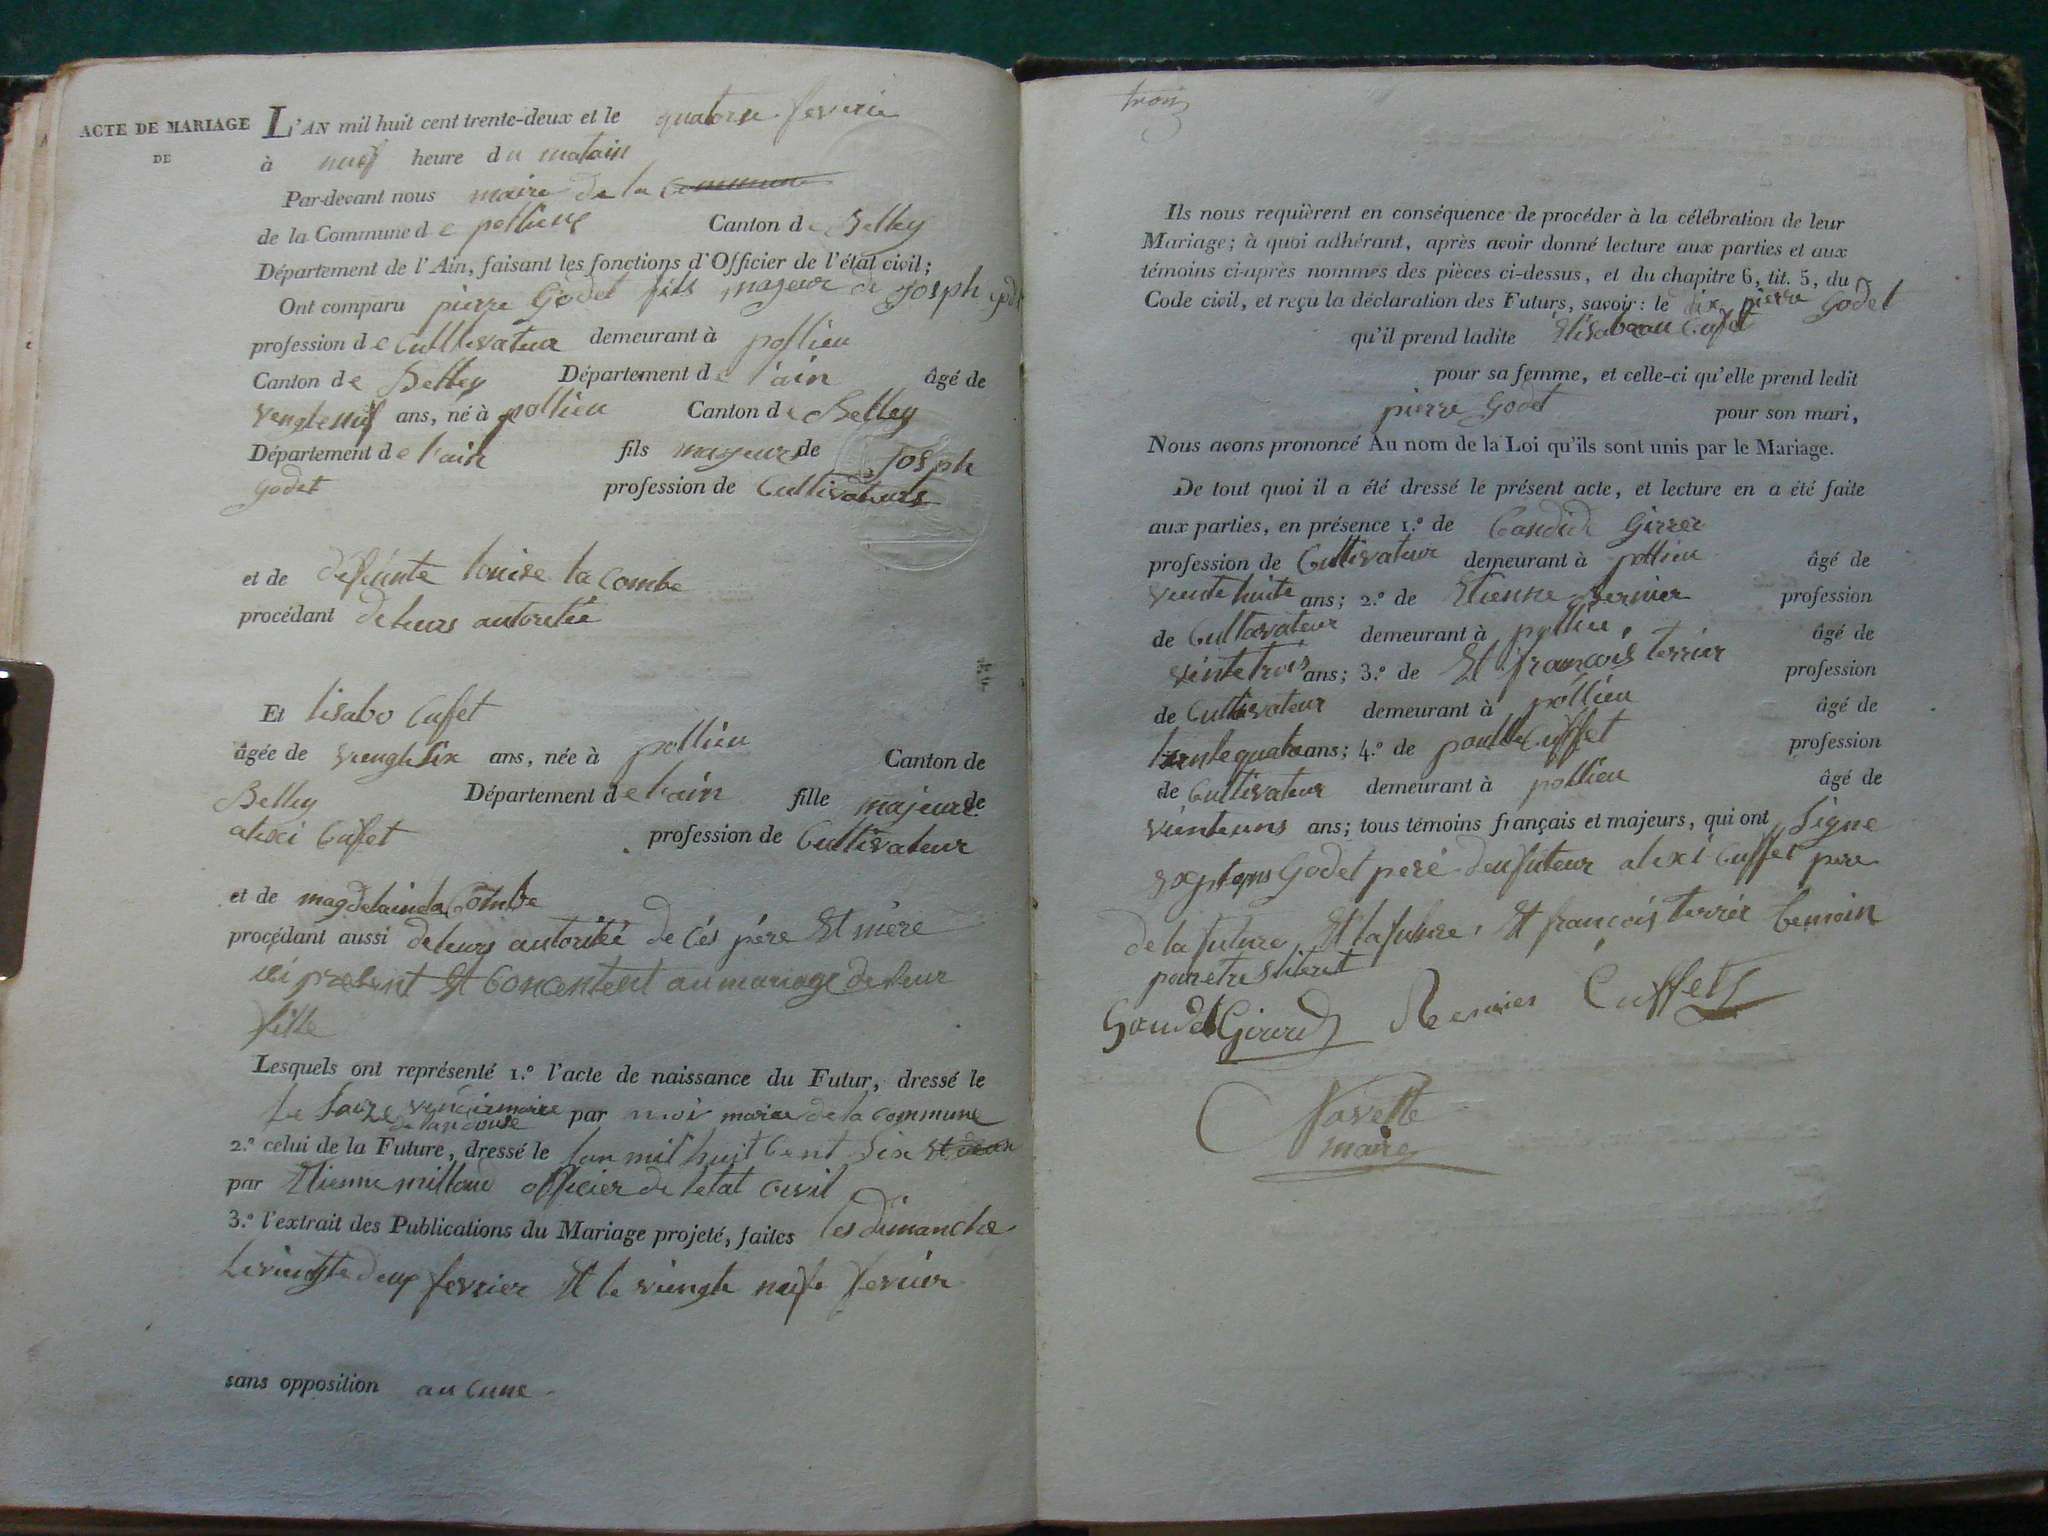 ACTE DE MARIAGE
DE
L'AN mil huit cent trente-deux et le quatorse fevrie
à neuf heure du matain
Par-devant nous maire de la commune
de la Commune de pollieux Canton de Belley
Département de l'Ain, faisant les fonctions d'Officier de l'état civil;
Ont comparu pierre Godet fils majeur de Josph
profession de Cultivateur demeurant à pollieu
Canton de Belley Département de l'ain âgé de
vengt neuf ans, né à pollieu Canton de Belley
Département de l'ain fils majeur de Josph
Godet profession de Cultivateurs
et de defeunte louise la Combe
procédant de leurs autoritée
Et lisabo Cufet
âgée de viengt six ans, née à pollieu Canton de
Belley Département de l'ain fille majeur de
alexi Cuffet profession de Cultivateur
et de magdelaine la Combe
procédant aussi de leurs autoritée de Cés pére Et mére
ici presant Et Concentent au mariage de leur
fille
Lesquels ont représenté 1.º l'acte de naissance du Futur, dressé le
le saize par moi maire de la commune
2.º celui de la Future, dressé le lan mil huit Cent six
par Etienne milloud officier de letat Civil
3.º l'extrait des Publications du Mariage projeté, faites les dimanche
le viengte deux fevrier Et le viengte neufe fevrier
sans opposition aucune
trois
Ils nous requièrent en conséquence de procéder à la célébration de leur
Mariage; à quoi adhérant, après avoir donné lecture aux parties et aux
témoins ci-après nommés des pièces ci-dessus, et du chapitre 6, tit. 5, du
Code civil, et reçu la déclaration des Futurs, savoir: le pierre Godet
qu'il prend ladite Elisabeau Cufet
pour sa femme, et celle-ci qu'elle prend ledit
pierre Godet pour son mari,
Nous avons prononcé Au nom de la Loi qu'ils sont unis par le Mariage.
De tout quoi il a été dressé le présent acte, et lecture en a été faite
aux parties, en présence 1.º de Candide Girrer
profession de Cultivateur demeurant à pollieu âgé de
vente huite ans; 2.º de Etienne Bernier profession
de Cultivateur demeurant à pollieu, âgé de
vinte trois ans; 3.º de Et françois terrier profession
de Cultivateur demeurant à pollieu âgé de
trente quatre ans; 4.º de Cuffet profession
de Cultivateur demeurant à pollieu âgé de
vienteuns ans; tous témoins français et majeurs, qui ont signe
Godet peré du futeur alexi Cuffet pere
de la future Et la future, Et françois terrier temoin
pour etre
Girard Cuffet
Navette
maire